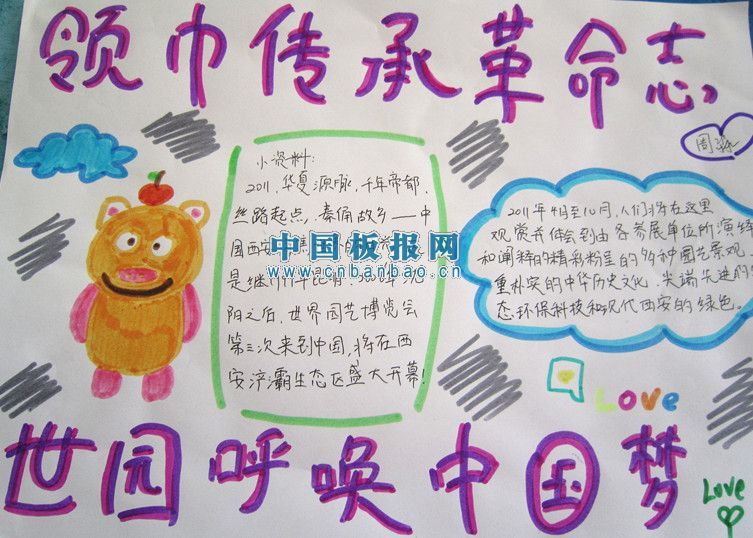 领巾传承革命志
小资料:
2011,华夏源脉,千年帝都,
丝路起点,秦俑故乡——中
国西安
是继1999年昆明、
阳之后,世界园艺博览会
第三次来到中国,将在西
安浐灞生态区盛大开幕!
中国板报网
www.cnbanbao.cn
2011年4月至10月,人们将在这里
观赏并体会到由各参展单位所演绎
和阐释的精彩粉呈的多种园艺景观、
重朴实的中华历史文化、尖端先进的
态环保科技和现代西安的绿色。
LOVE
世园呼唤中国梦
Love